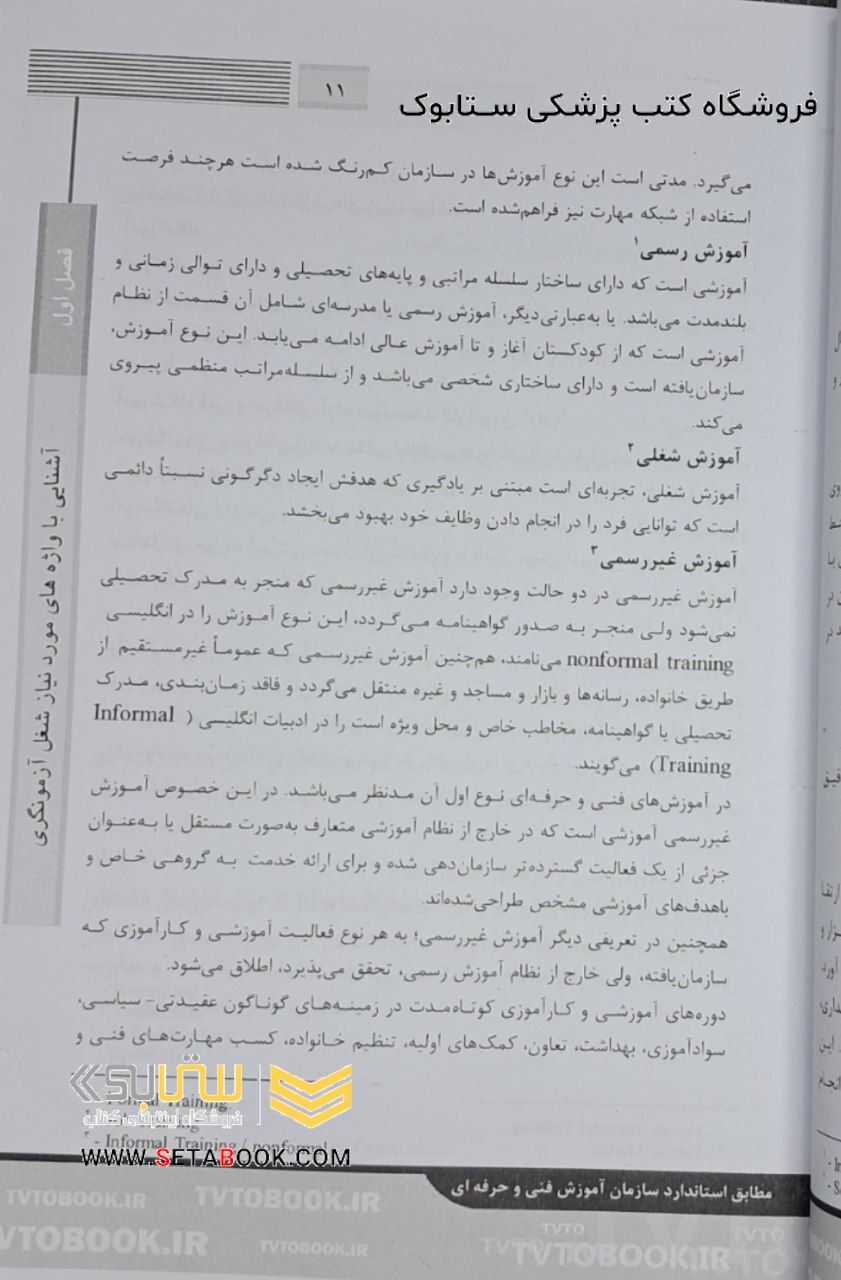 ۱۱
فروشگاه کتب پزشکی ستابوک
می‌گیرد. مدتی است این نوع آموزش‌ها در سازمان کم‌رنگ شده است هرچند فرصت
استفاده از شبکه مهارت نیز فراهم‌شده است.
آموزش رسمی۱
آموزشی است که دارای ساختار سلسله مراتبی و پایه‌های تحصیلی و دارای توالی زمانی و
بلندمدت می‌باشد. یا به‌عبارتی‌دیگر، آموزش رسمی یا مدرسه‌ای شامل آن قسمت از نظام
آموزشی است که از کودکستان آغاز و تا آموزش عالی ادامه می‌یابد. این نوع آموزش،
سازمان‌یافته است و دارای ساختاری شخصی می‌باشد و از سلسله‌مراتب منظمی پیروی
می‌کند.
آموزش شغلی۲
آموزش شغلی، تجربه‌ای است مبتنی بر یادگیری که هدفش ایجاد دگرگونی نسبتاً دائمی
است که توانایی فرد را در انجام دادن وظایف خود بهبود می‌بخشد.
آموزش غیررسمی۳
آموزش غیررسمی در دو حالت وجود دارد آموزش غیررسمی که منجر به مدرک تحصیلی
نمی‌شود ولی منجر به صدور گواهینامه می‌گردد، این نوع آموزش را در انگلیسی
nonformal training می‌نامند، هم‌چنین آموزش غیررسمی که عموماً غیرمستقیم از
طریق خانواده، رسانه‌ها و بازار و مساجد و غیره منتقل می‌گردد و فاقد زمان‌بندی، مدرک
تحصیلی یا گواهینامه، مخاطب خاص و محل ویژه است را در ادبیات انگلیسی ( Informal
Training) می‌گویند.
در آموزش‌های فنی و حرفه‌ای نوع اول آن مدنظر می‌باشد. در این خصوص آموزش
غیررسمی آموزشی است که در خارج از نظام آموزشی متعارف به‌صورت مستقل یا به‌عنوان
جزئی از یک فعالیت گسترده‌تر سازمان‌دهی شده و برای ارائه خدمت به گروهی خاص و
باهدف‌های آموزشی مشخص طراحی‌شده‌اند.
همچنین در تعریفی دیگر آموزش غیررسمی؛ به هر نوع فعالیت آموزشی و کارآموزی که
سازمان‌یافته، ولی خارج از نظام آموزش رسمی، تحقق می‌پذیرد، اطلاق می‌شود.
دوره‌های آموزشی و کارآموزی کوتاه‌مدت در زمینه‌های گوناگون عقیدتی- سیاسی،
سوادآموزی، بهداشت، تعاون، کمک‌های اولیه، تنظیم خانواده، کسب مهارت‌های فنی و
Training
۳ - Informal Training / nonformal
فصل اول
آشنایی با واژه های مورد نیاز شغل آزمونگری
ستابوک
فروشگاه اینترنتی کتاب
WWW.SETABOOK.COM
مطابق استاندارد سازمان آموزش فنی و حرفه ای
TVTOBOOK.IR
TVTOBOOK.IR
TVTOBOOK.IR
TVTOBOOK.IR
TVTO
TVTOBOOK.IR
TVTO